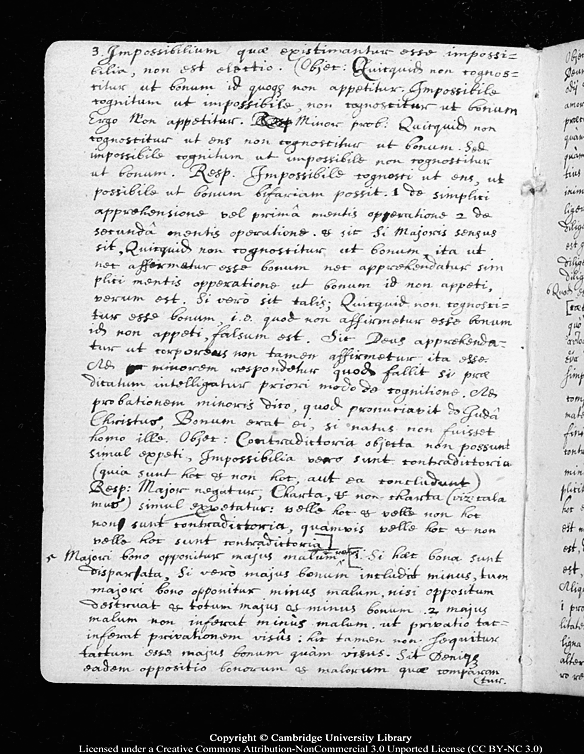 3. Impossibilium quæ existimantur esse impossi=
bilia, non est electio. (Objec: Quicquid non cognos=
citur ut bonum id quoq; non appetitur. Impossibile
cognitum ut impossibile, non cognoscitur ut bonum
Ergo Non appetitur. Minor prob: Quicquid non
cognoscitur ut ens non cognoscitur ut bonum. Sed
impossibile cognitum ut impossibile non cognoscitur
ut bonum. Resp. Impossibile cognosci ut ens, ut
possibile ut bonum bifariam possit. 1 de simplici
apprehensione vel primâ mentis operatione 2 de
secundâ mentis operatione. & sic Si Majoris sensus
sit, Quicquid non cognoscitur ut bonum ita ut
nec affermetur esse bonum nec apprehendatur sim
plici mentis opperatione ut bonum id non appeti,
verum est. Si verò sit talis; Quicquid non cognosci=
tur esse bonum, i.e. quod non affirmetur esse bonum
id non appeti, falsum est. Sic Deus apprehenda=
tur ut corporeus non tamen affirmetur ita esse.
Ad minorem respondetur quod fallit si præ
dicatum intelligatur priori modo de cognitione, Ad
probationem minoris dico, quod pronuciavit de Judâ
Christus, Bonum erat ei, si natus non fuisset
homo ille. Objec: Contradictoria objecta non possunt
simul expeti, Impossibilia vero sunt contradictoria
(quia sunt hoc & non hoc, aut ea concludunt)
Resp: Major negatur, Charta, & non charta (viz: cala
mus) simul expetatur: velle hoc & velle non hoc
non sunt contradictoria, quamvis velle hoc & non
velle hoc sunt contradictoria]
Majori bono opponitur majus malum [. Si hæc bona sunt
disparata, Si verò majus bonum includit minus, tum
majori bono opponitur minus malum, nisi oppositum
destruat & totum majus & minus bonum. 2 majus
malum non inferat minus malum. ut privatio tac=
inferat privationem visûs: hic tamen non sequitur
tactum esse majus bonum quàm visus. Sit Deniq;
eadem oppositio bonorum & malorum quæ comparan
(tur.